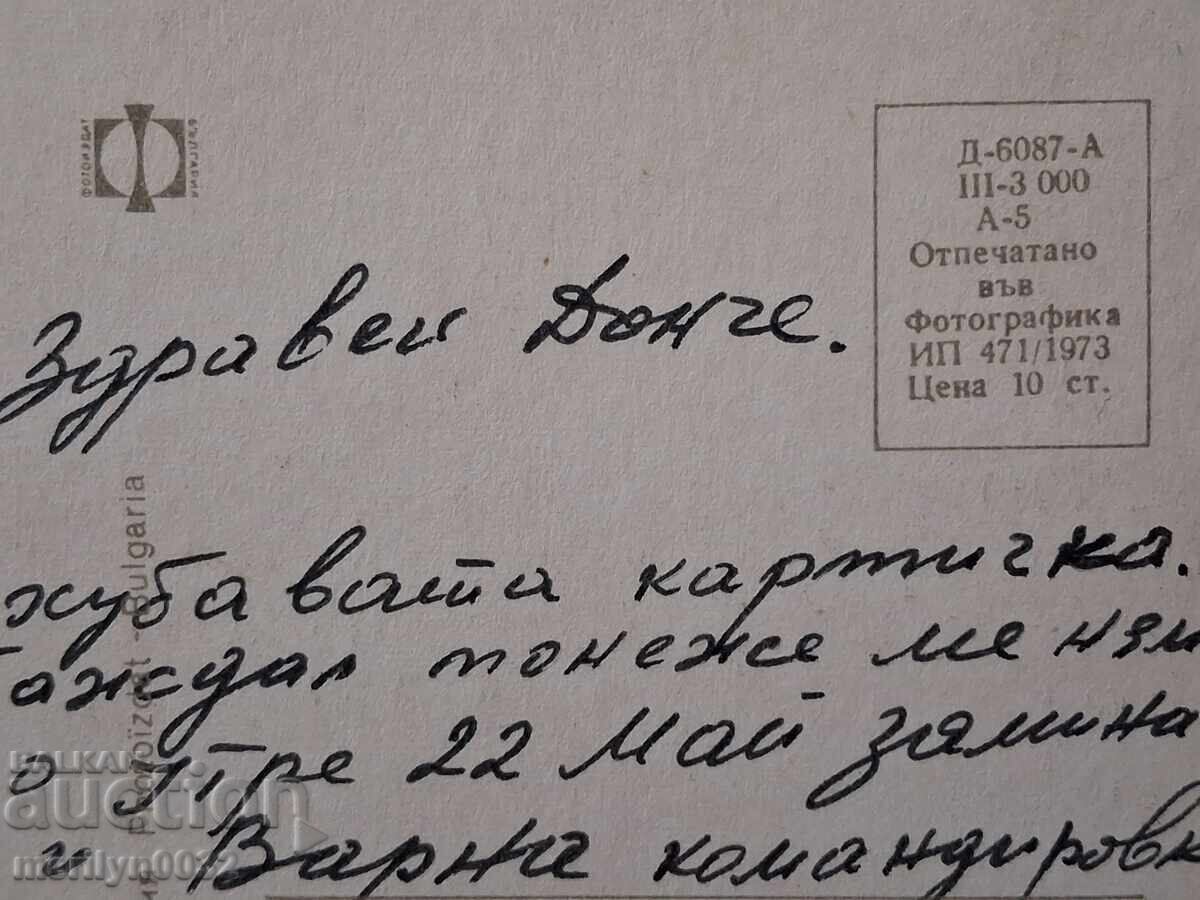 ФОТОИЗДАТ
БЪЛГАРИЯ
Д-6087-А
III-3 000
А-5
Отпечатано
във
Фотографика
ИП 471/1973
Цена 10 ст.
Здравей Донче.
хубавата картичка.
понеже ме ням
утре 22 Май замина
и Варна командировк
Bulgaria
BALKAN
auction
merilyn0032